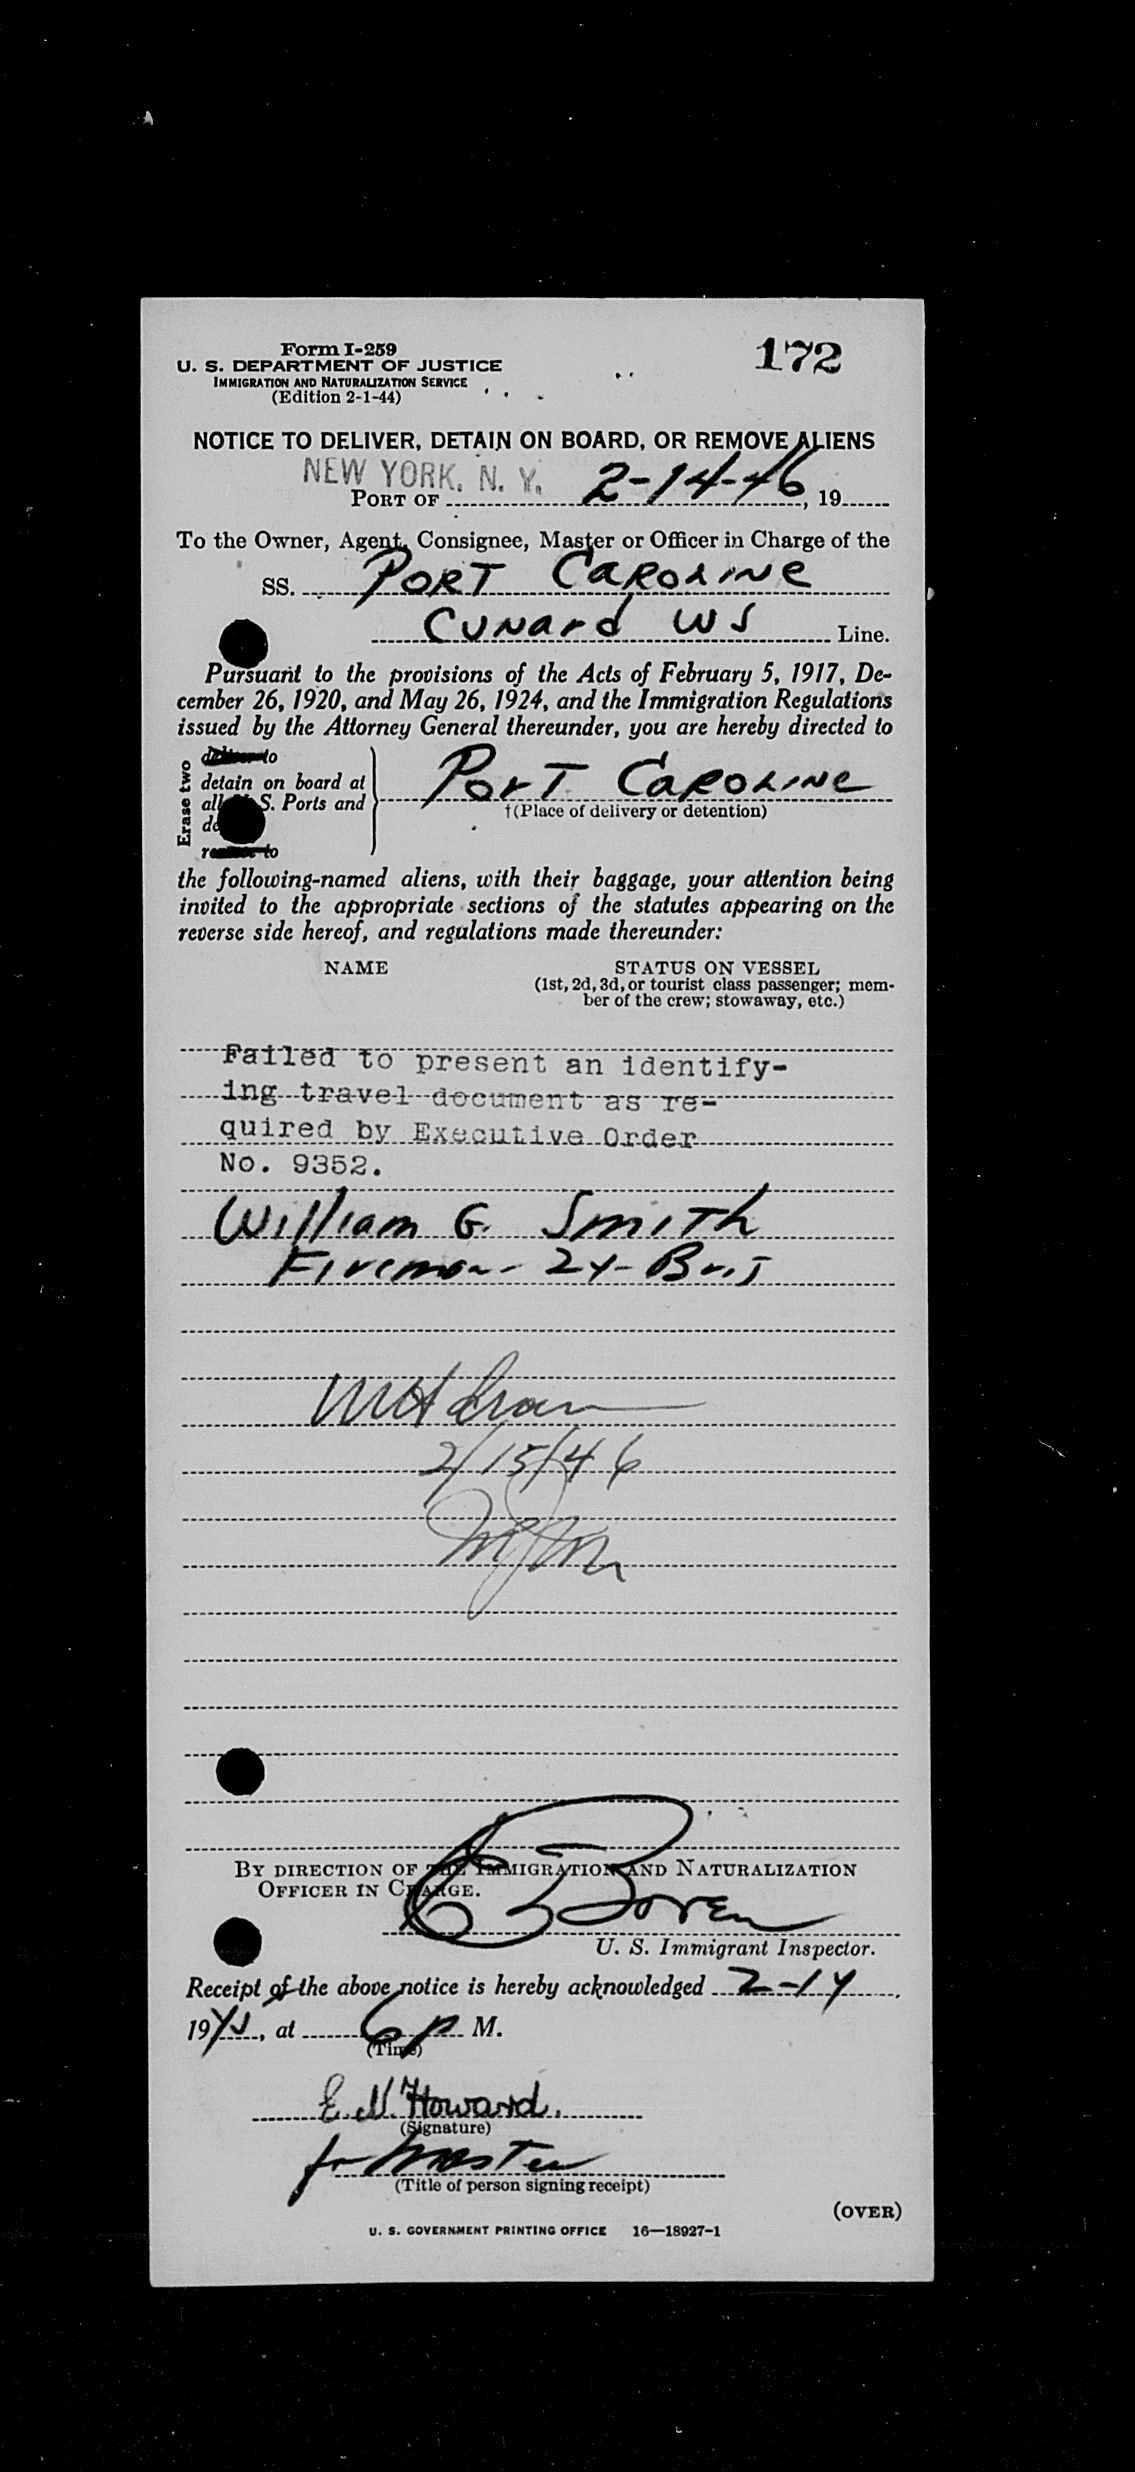 Form I-259
172
U. S. DEPARTMENT OF JUSTICE
IMMIGRATION AND NATURALIZATION SERVICE
(Edition 2-1-44)
NOTICE TO DELIVER, DETAIN ON BOARD, OR REMOVE ALIENS
NEW YORK, N. Y.
PORT OF 2-14-46, 19
To the Owner, Agent, Consignee, Master or Officer in Charge of the
SS. PORT CAROLINE
CUNARD WS Line.
Pursuant to the provisions of the Acts of February 5, 1917, De-
cember 26, 1920, and May 26, 1924, and the Immigration Regulations
issued by the Attorney General thereunder, you are hereby directed to
Erase two
deliver to
detain on board at
all U. S. Ports and
remove to
PORT CAROLINE
†(Place of delivery or detention)
the following-named aliens, with their baggage, your attention being
invited to the appropriate sections of the statutes appearing on the
reverse side hereof, and regulations made thereunder:
NAME
STATUS ON VESSEL
(1st, 2d, 3d, or tourist class passenger; mem-
ber of the crew; stowaway, etc.)
Failed to present an identify-
ing travel document as re-
quired by Executive Order
No. 9352.
William G. Smith
Fireman - 24 - Brit
2/15/46
BY DIRECTION OF THE IMMIGRATION AND NATURALIZATION
OFFICER IN CHARGE.
U. S. Immigrant Inspector.
Receipt of the above notice is hereby acknowledged 2-14,
19, at 6 P M.
(Time)
E. N. Howard.
(Signature)
for Master
(Title of person signing receipt)
(OVER)
U. S. GOVERNMENT PRINTING OFFICE 16—18927-1